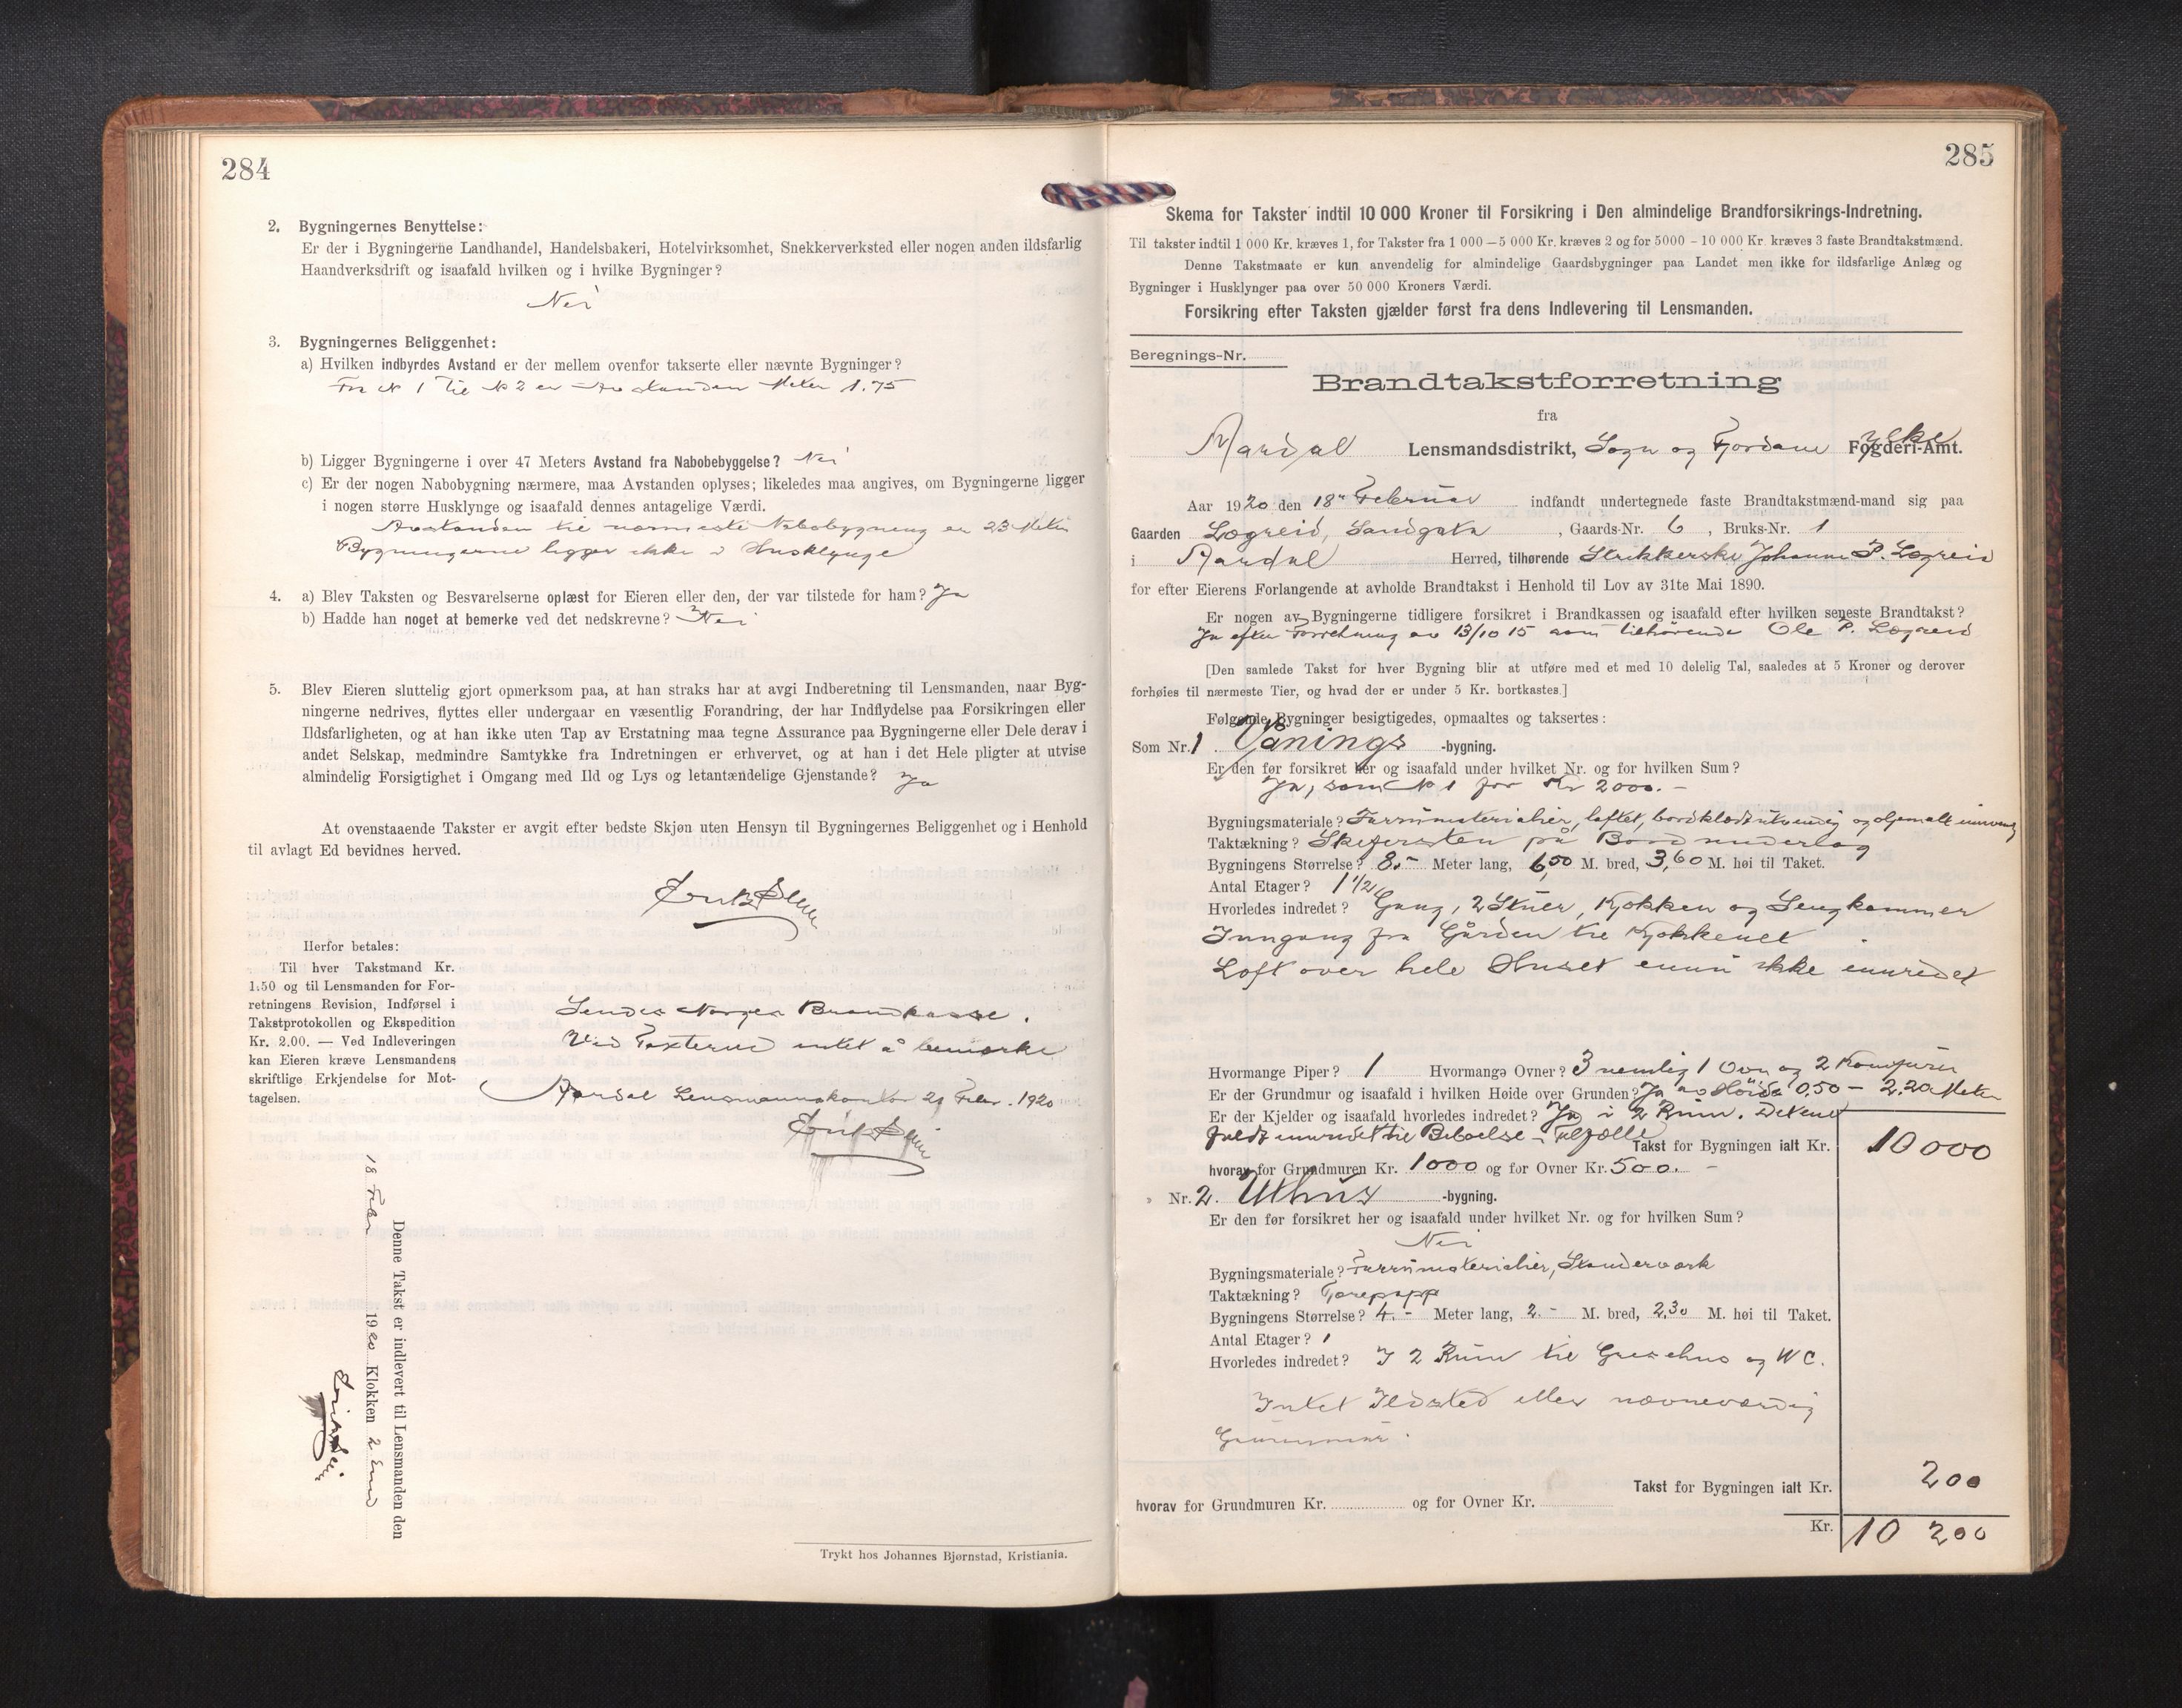 284
2. Bygningernes Benyttelse:
Er der i Bygningerne Landhandel, Handelsbakeri, Hotelvirksomhet, Snekkerverksted eller nogen anden ildsfarlig
Haandverksdrift og isaafald hvilken og i hvilke Bygninger?
Nei
3. Bygningernes Beliggenhet:
a) Hvilken indbyrdes Avstand er der mellem ovenfor takserte eller nævnte Bygninger?
Fra N 1 til N 2 er Avstanden Meter 1.75
b) Ligger Bygningerne i over 47 Meters Avstand fra Nabobebyggelse? Nei
c) Er der nogen Nabobygning nærmere, maa Avstanden oplyses; likeledes maa angives, om Bygningerne ligger
i nogen større Husklynge og isaafald dennes antagelige Værdi.
Avstanden til nærmeste Nabobygning er 23 Meter
Bygningerne ligger ikke i Husklynge
4. a) Blev Taksten og Besvarelserne oplæst for Eieren eller den, der var tilstede for ham? Ja
b) Hadde han noget at bemerke ved det nedskrevne? Nei
5. Blev Eieren sluttelig gjort opmerksom paa, at han straks har at avgi Indberetning til Lensmanden, naar Byg-
ningerne nedrives, flyttes eller undergaar en væsentlig Forandring, der har Indflydelse paa Forsikringen eller
Ildsfarligheten, og at han ikke uten Tap av Erstatning maa tegne Assurance paa Bygningerne eller Dele derav i
andet Selskap, medmindre Samtykke fra Indretningen er erhvervet, og at han i det Hele pligter at utvise
almindelig Forsigtighet i Omgang med Ild og Lys og letantændelige Gjenstande? Ja
At ovenstaaende Takster er avgit efter bedste Skjøn uten Hensyn til Bygningernes Beliggenhet og i Henhold
til avlagt Ed bevidnes herved.
Herfor betales:
Til hver Takstmand Kr.
1.50 og til Lensmanden for For-
retningens Revision, Indførsel i
Takstprotokollen og Ekspedition
Kr. 2.00. — Ved Indleveringen
kan Eieren kræve Lensmandens
skriftlige Erkjendelse for Mot-
tagelsen.
Sendes Norges Brandkasse.
Ved Taxterne intet å bemerke
Aardal Lensmannskontor 21 Febr. 1920
Denne Takst er indlevert til Lensmanden den
18 Febr 1920 Klokken 2 Emd
Trykt hos Johannes Bjørnstad, Kristiania.
285
Skema for Takster indtil 10 000 Kroner til Forsikring i Den almindelige Brandforsikrings-Indretning.
Til takster indtil 1 000 Kr. kræves 1, for Takster fra 1 000 – 5 000 Kr. kræves 2 og for 5000 – 10 000 Kr. kræves 3 faste Brandtakstmænd.
Denne Takstmaate er kun anvendelig for almindelige Gaardsbygninger paa Landet men ikke for ildsfarlige Anlæg og
Bygninger i Husklynger paa over 50 000 Kroners Værdi.
Forsikring efter Taksten gjælder først fra dens Indlevering til Lensmanden.
Beregnings-Nr.
Brandtakstforretning
fra
Aardal Lensmandsdistrikt, Sogn og Fjordane Fogderi-Amt. ylke
Aar 1920 den 18. Februar indfandt undertegnede faste Brandtakstmænd-mand sig paa
Gaarden Lægreid, Sandgata, Gaards-Nr. 6, Bruks-Nr. 1
i Aardal Herred, tilhørende Strikkerske Johanne P. Lægreid
for efter Eierens Forlangende at avholde Brandtakst i Henhold til Lov av 31te Mai 1890.
Er nogen av Bygningerne tidligere forsikret i Brandkassen og isaafald efter hvilken seneste Brandtakst?
Ja efter Forretning av 13/10 15 som tilhørende Ole P. Lægreid
[Den samlede Takst for hver Bygning blir at utføre med et med 10 delelig Tal, saaledes at 5 Kroner og derover
forhøies til nærmeste Tier, og hvad der er under 5 Kr. bortkastes.]
Følgende Bygninger besigtigedes, opmaaltes og taksertes:
Som Nr. 1. Vånings -bygning.
Er den før forsikret her og isaafald under hvilket Nr. og for hvilken Sum?
Ja, som N 1 for Kr 2000.-
Bygningsmateriale? Furrumaterialier, laftet, bordklædt utvendig og oljemalt innvendig
Taktækning? Skifersten på Bordunderlag
Bygningens Størrelse? 8.- Meter lang, 6,50 M. bred, 3,60 M. høi til Taket.
Antal Etager? 1 1/2
Hvorledes indredet? Gang, 2 Stuer, Kjøkken og Sengkammer
Inngang fra Gården til Kjøkkenet
Loft over hele Huset ennu ikke innredet
Hvormange Piper? 1 Hvormange Ovner? 3 nemlig 1 Ovn og 2 Komfurer
Er der Grundmur og isaafald i hvilken Høide over Grunden? Ja av Höide 0,50 - 2.20 Meter
Er der Kjelder og isaafald hvorledes indredet? Ja i 2 Rum. Det ene
fuldt innredet til Beboelse - Takst for Bygningen ialt Kr. 10000
hvorav for Grundmuren Kr. 1000 og for Ovner Kr. 500. -
Nr. 2. Uthus -bygning.
Er den før forsikret her og isaafald under hvilket Nr. og for hvilken Sum?
Nei
Bygningsmateriale? Furrumaterialier, Standerværk
Taktækning? Tarepapp
Bygningens Størrelse? 4.- Meter lang, 2.- M. bred, 2,30 M. høi til Taket.
Antal Etager? 1
Hvorledes indredet? I 2 Rum til Grisehus og WC.
Intet Ildsted eller nævneværdig
Grunnmur.
Takst for Bygningen ialt Kr. 200
hvorav for Grundmuren Kr. og for Ovner Kr.
Kr. 10 200